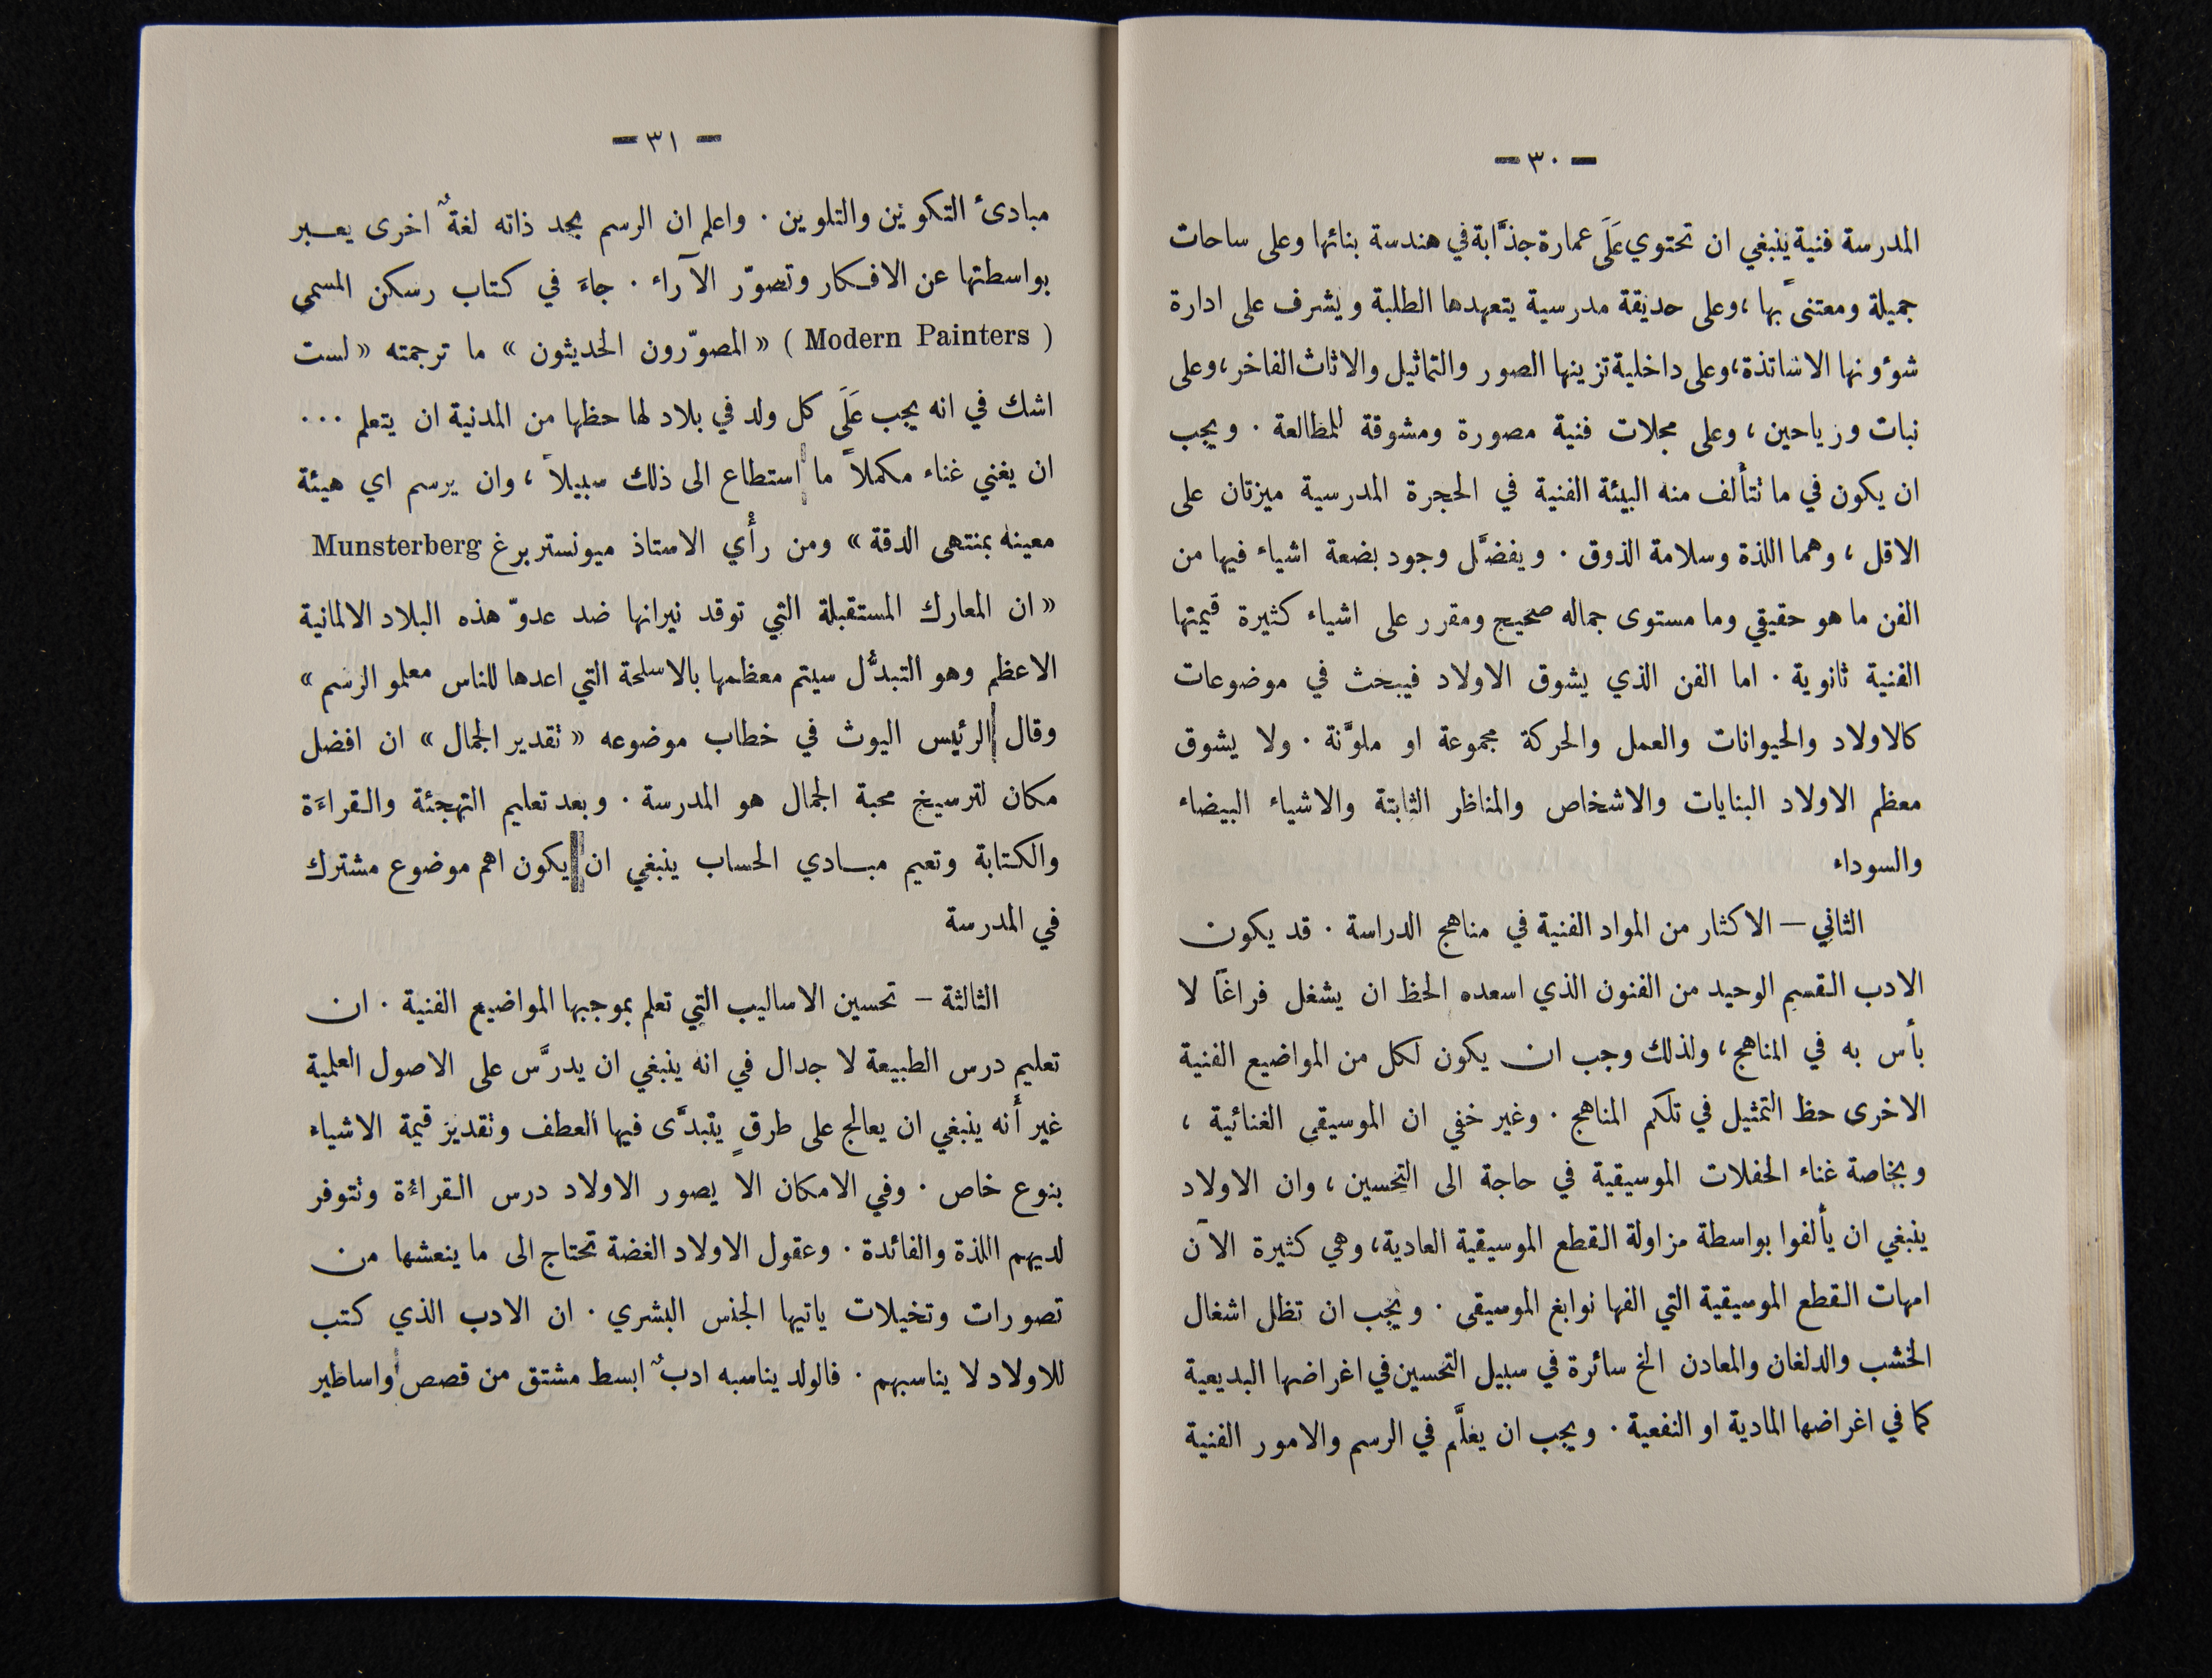 — ٣٠ —
المدرسة فنية ينبغي ان تحتوي عَلَى عمارة جذَّابة في هندسة بنائها وعلى ساحات
جميلة ومعتنىً بها ، وعلى حديقة مدرسية يتعهدها الطلبة ويشرف على ادارة
شؤونها الاساتذة، وعلى داخلية تزينها الصور والتماثيل والاثاث الفاخر، وعلى
نبات ورياحين ، وعلى مجلات فنية مصورة ومشوقة للمطالعة . ويجب
ان يكون في ما تتألف منه البيئة الفنية في الحجرة المدرسية ميزتان على
الاقل ، وهما اللذة وسلامة الذوق . ويفضَّل وجود بضعة اشياء فيها من
الفن ما هو حقيقي وما مستوى جماله صحيح ومقرر على اشياء كثيرة قيمتها
الفنية ثانوية . اما الفن الذي يشوق الاولاد فيبحث في موضوعات
كالاولاد والحيوانات والعمل والحركة مجموعة او ملوَّنة . ولا يشوق
معظم الاولاد البنايات والاشخاص والمناظر الثابتة والاشياء البيضاء
والسوداء
الثاني — الاكثار من المواد الفنية في مناهج الدراسة . قد يكون
الادب القسم الوحيد من الفنون الذي اسعده الحظ ان يشغل فراغاً لا
بأس به في المناهج ، ولذلك وجب ان يكون لكل من المواضيع الفنية
الاخرى حظ التمثيل في تلكم المناهج . وغير خفي ان الموسيقى الغنائية ،
وبخاصة غناء الحفلات الموسيقية في حاجة الى التحسين ، وان الاولاد
ينبغي ان يألفوا بواسطة مزاولة القطع الموسيقية العادية، وهي كثيرة الآن
امهات القطع الموسيقية التي الفها نوابغ الموسيقى . ويجب ان تظل اشغال
الخشب والدلغان والمعادن الخ سائرة في سبيل التحسين في اغراضها البديعية
كما في اغراضها المادية او النفعية . ويجب ان يعلَّم في الرسم والامور الفنية
— ٣١ —
مبادئ التكوين والتلوين . واعلم ان الرسم بجد ذاته لغةٌ اخرى يعبر
بواسطتها عن الافكار وتصوّر الآراء . جاءَ في كتاب رسكن المسمى
( Modern Painters ) « المصوّرون الحديثون » ما ترجمته « لست
اشك في انه يجب عَلَى كل ولد في بلاد لها حظها من المدنية ان يتعلم ...
ان يغني غناء مكملاً ما استطاع الى ذلك سبيلاً ، وان يرسم اي هيئة
معينه بمنتهى الدقة » ومن رأْي الاستاذ ميونستربرغ Munsterberg
« ان المعارك المستقبلة التي توقد نيرانها ضد عدوّ هذه البلاد الالمانية
الاعظم وهو التبدُّل سيتم معظمها بالاسلحة التي اعدها للناس معلمو الرسم »
وقال الرئيس اليوث في خطاب موضوعه « تقدير الجمال » ان افضل
مكان لترسيخ محبة الجمال هو المدرسة . وبعد تعليم التهجئة والقراءَة
والكتابة وتعيم مبادي الحساب ينبغي ان يكون اهم موضوع مشترك
في المدرسة
الثالثة — تحسين الاساليب التي تعلم بموجبها المواضيع الفنية . ان
تعليم درس الطبيعة لا جدال في انه ينبغي ان يدرَّس على الاصول العلمية
غير أَنه ينبغي ان يعالج على طرقٍ يتبدَّى فيها العطف وتقدير قيمة الاشياء
بنوع خاص . وفي الامكان الا يصور الاولاد درس القراءة وتتوفر
لديهم اللذة والفائدة . وعقول الاولاد الغضة تحتاج الى ما ينعشها من
تصورات وتخيلات ياتيها الجنس البشري . ان الادب الذي كتب
للاولاد لا يناسبهم . فالولد يناسبه ادبٌ ابسط مشتق من قصص واساطير